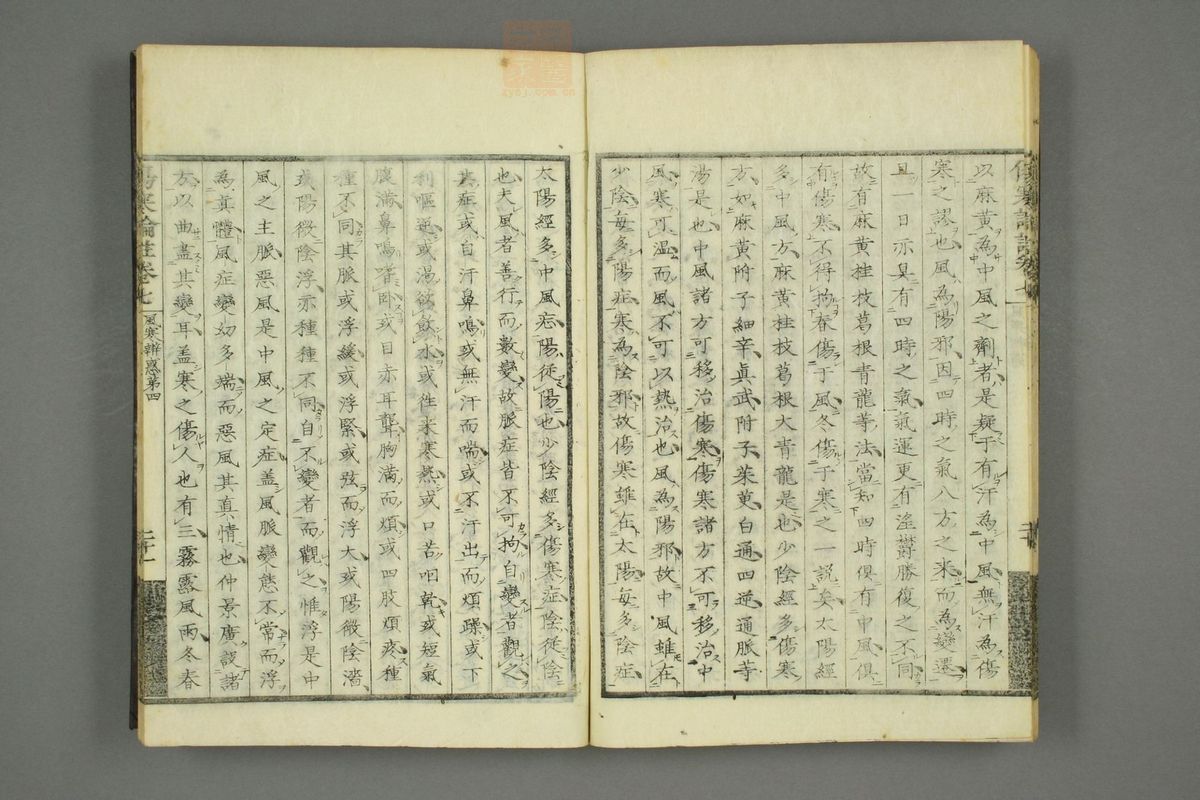 以麻黃為中風之劑者是疑于有汗為中風無汗為傷
寒之謬也風為陽邪因四時之氣八方之來而為變遷
且一日亦具有四時之氣氣運更有淫鬱勝復之不同
故有麻黃桂枝葛根青龍等法當知四時俱有中風俱
有傷寒不得拘春傷于風冬傷于寒之一說矣太陽經
多中風方麻黃桂枝葛根大青龍是也少陰經多傷寒
方如麻黃附子細辛眞武附子茱萸白通四逆通脈等
湯是也中風諸方可移治傷寒傷寒諸方不可移治中
風寒可溫而風不可以熱治也風為陽邪故中風雖在
少陰每多陽症寒為陰邪故傷寒雖在太陽每多陰症
太陽經多中風症陽從陽也少陰經多傷寒症陰從陰
也夫風者善行而數變故脈症皆不可拘自變者觀之
其症或自汗鼻鳴或無汗而喘或不汗出而煩躁或下
利嘔逆或渴欲飲水或徃來寒熱或口苦咽乾或短氣
腹滿鼻鳴嗜卧或目赤耳聾胸滿而煩或四肢煩疼種
種不同其脈或浮緩或浮緊或弦而浮大或陽微陰濇
或陽微陰浮亦種種不同自不變者而觀之惟浮是中
風之主脈惡風是中風之定症盖風脈變態不常而浮
為眞體風症變幻多端而惡風其眞情也仲景廣設諸
方以曲盡其變耳盖寒之傷人也有三霧露風雨冬春
傷寒論註卷七
風寒辨惑第四
二十一
zysj.com.cn